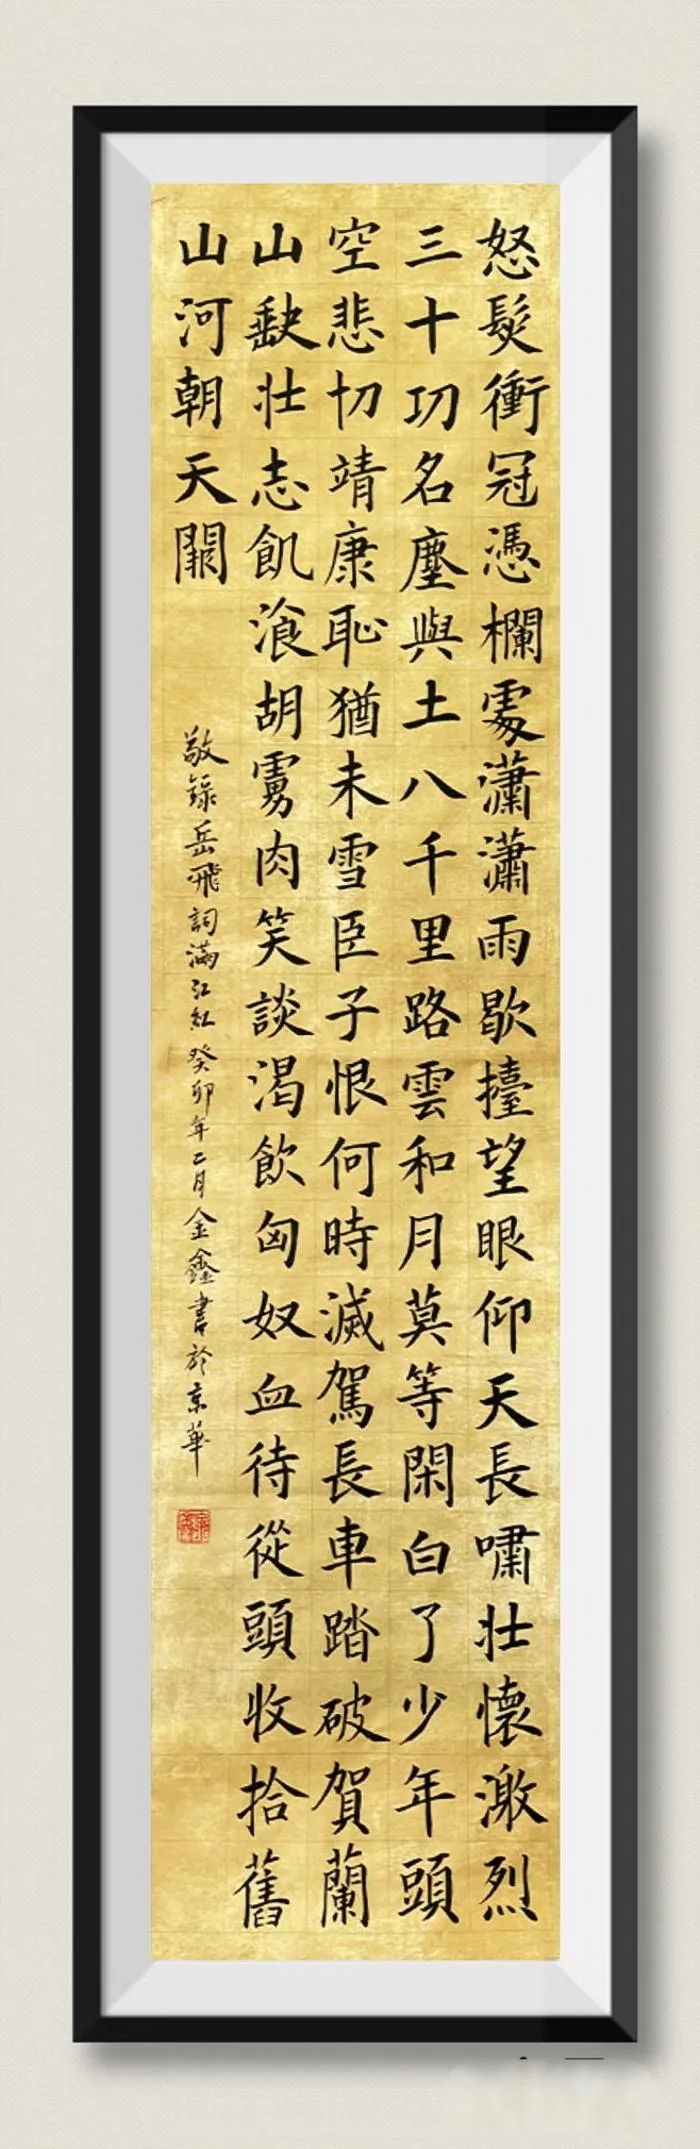 怒髮衝冠憑欄處瀟瀟雨歇擡望眼仰天長嘯壯懷激烈
三十功名塵與土八千里路雲和月莫等閑白了少年頭
空悲切靖康恥猶未雪臣子恨何時滅駕長車踏破賀蘭
山缺壯志飢湌胡虜肉笑談渴飲匈奴血待從頭收拾舊
山河朝天闕
敬錄岳飛詞滿江紅癸卯年二月金鑫書於京華